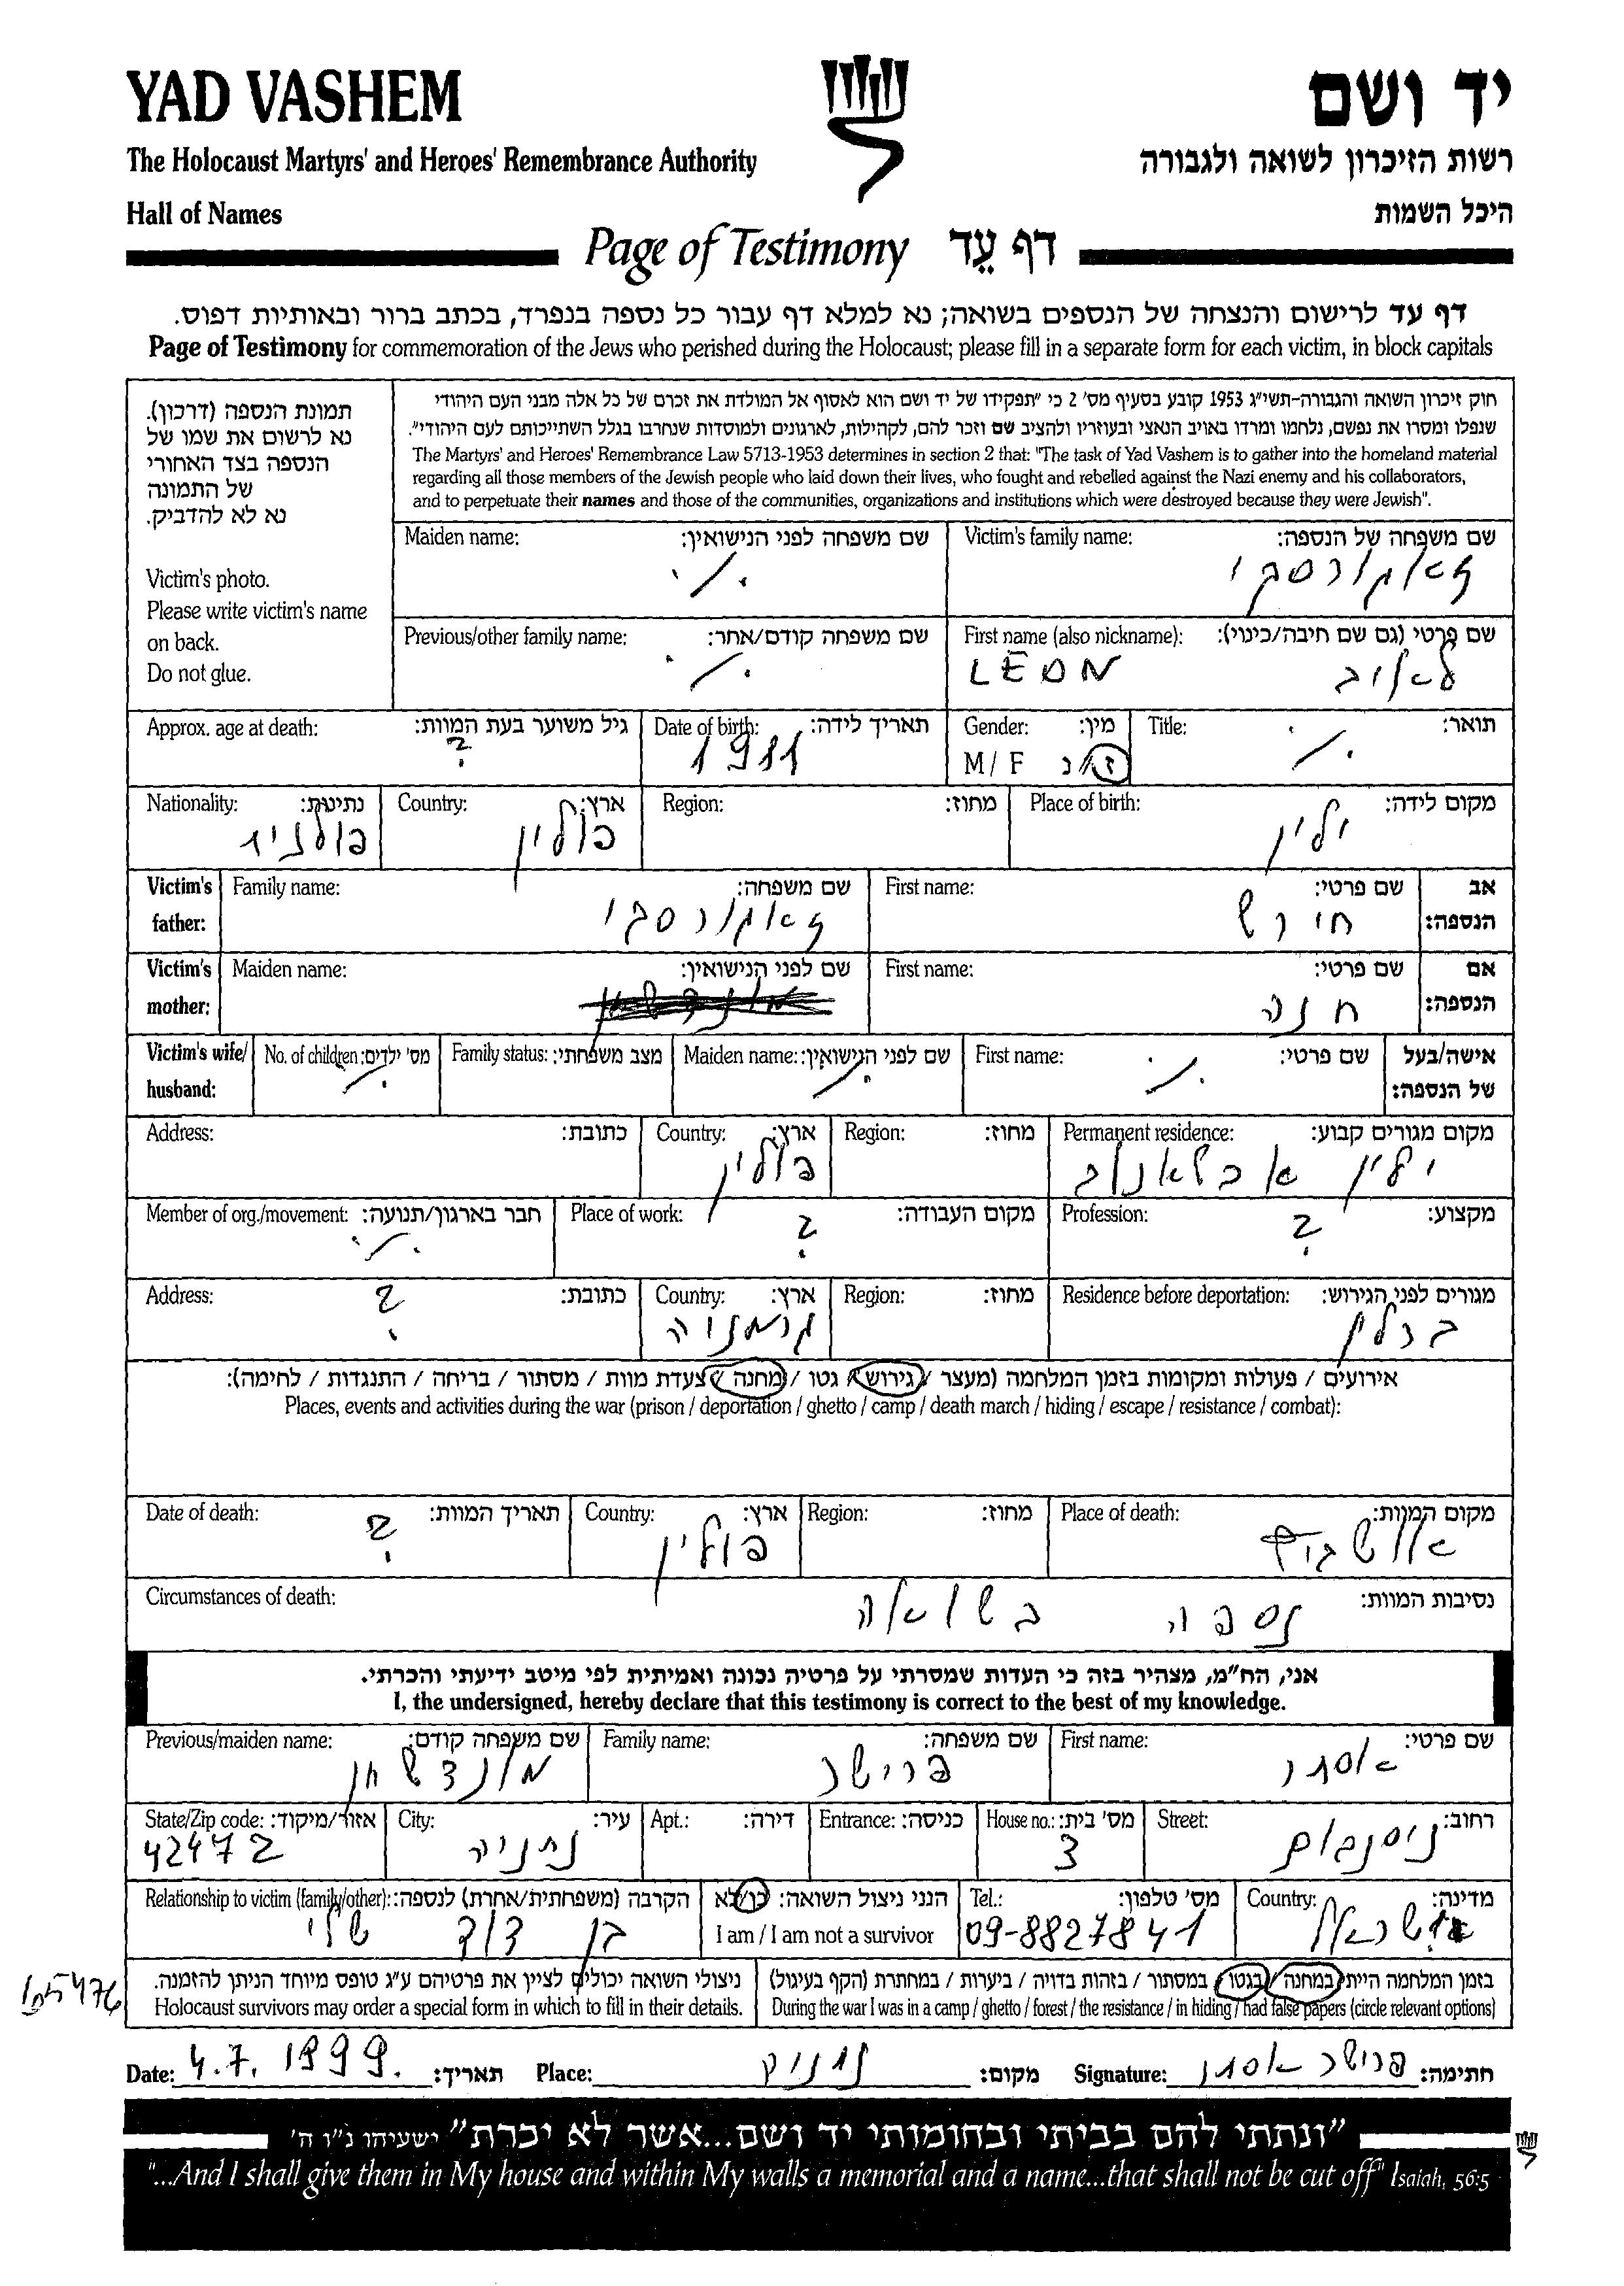 YAD VASHEM
יד ושם
The Holocaust Martyrs' and Heroes' Remembrance Authority
רשות הזיכרון לשואה ולגבורה
Hall of Names
היכל השמות
Page of Testimony דף עֵד
דף עד לרישום והנצחה של הנספים בשואה; נא למלא דף עבור כל נספה בנפרד, בכתב ברור ובאותיות דפוס.
Page of Testimony for commemoration of the Jews who perished during the Holocaust; please fill in a separate form for each victim, in block capitals
תמונת הנספה (דרכון).
נא לרשום את שמו של
הנספה בצד האחורי
של התמונה
נא לא להדביק.
Victim's photo.
Please write victim's name
on back.
Do not glue.
חוק זיכרון השואה והגבורה-תשי"ג 1953 קובע בסעיף מס' 2 כי "תפקידו של יד ושם הוא לאסוף אל המולדת את זכרם של כל אלה מבני העם היהודי
שנפלו ומסרו את נפשם, נלחמו ומרדו באויב הנאצי ובעוזריו ולהציב שם וזכר להם, לקהילות, לארגונים ולמוסדות שנחרבו בגלל השתייכותם לעם היהודי".
The Martyrs' and Heroes' Remembrance Law 5713-1953 determines in section 2 that: "The task of Yad Vashem is to gather into the homeland material
regarding all those members of the Jewish people who laid down their lives, who fought and rebelled against the Nazi enemy and his collaborators,
and to perpetuate their names and those of the communities, organizations and institutions which were destroyed because they were Jewish".
Victim's family name: שם משפחה של הנספה:
Maiden name: שם משפחה לפני הנישואין:
./.
First name (also nickname): שם פרטי (גם שם חיבה/כינוי):
LEON
Previous/other family name: שם משפחה קודם/אחר:
./.
Title: תואר:
./.
Gender: מין:
M / F ז/נ
Date of birth: תאריך לידה:
1911
Approx. age at death: גיל משוער בעת המוות:
?
Place of birth: מקום לידה:
ילין
Region: מחוז:
Country: ארץ:
פולין
Nationality: נתינות:
אב הנספה:
First name: שם פרטי:
חירש
Family name: שם משפחה:
Victim's father:
אם הנספה:
First name: שם פרטי:
חנה
Maiden name: שם לפני הנישואין:
Victim's mother:
אישה/בעל של הנספה:
First name: שם פרטי:
./.
Maiden name: שם לפני הנישואין:
./.
Family status: מצב משפחתי:
No. of children: מס' ילדים:
./.
Victim's wife/ husband:
Permanent residence: מקום מגורים קבוע:
ילין
Region: מחוז:
Country: ארץ:
פולין
Address: כתובת:
Profession: מקצוע:
?
Place of work: מקום העבודה:
?
Member of org./movement: חבר בארגון/תנועה:
./.
Residence before deportation: מגורים לפני הגירוש:
ברלין
Region: מחוז:
Country: ארץ:
גרמניה
Address: כתובת:
?
אירועים / פעולות ומקומות בזמן המלחמה (מעצר / גירוש / גטו / מחנה / צעדת מוות / מסתור / בריחה / התנגדות / לחימה):
Places, events and activities during the war (prison / deportation / ghetto / camp / death march / hiding / escape / resistance / combat):
Place of death: מקום המוות:
Region: מחוז:
Country: ארץ:
פולין
Date of death: תאריך המוות:
?
Circumstances of death: נסיבות המוות:
נספה בשואה
אני, הח"מ, מצהיר בזה כי העדות שמסרתי על פרטיה נכונה ואמיתית לפי מיטב ידיעתי והכרתי.
I, the undersigned, hereby declare that this testimony is correct to the best of my knowledge.
First name: שם פרטי:
אסתר
Family name: שם משפחה:
פרישר
Previous/maiden name: שם משפחה קודם:
Street: רחוב:
House no.: מס' בית:
3
Entrance: כניסה:
Apt.: דירה:
City: עיר:
נתניה
State/Zip code: אזור/מיקוד:
42472
Country: מדינה:
ישראל
Tel.: מס' טלפון:
09-8827841
הנני ניצול השואה: כן/לא
I am / I am not a survivor
Relationship to victim (family/other): הקרבה (משפחתית/אחרת) לנספה:
בן דוד שלי
בזמן המלחמה הייתי במחנה / בגטו / במסתור / בזהות בדויה / ביערות / במחתרת (הקף בעיגול)
During the war I was in a camp / ghetto / forest / the resistance / in hiding / had false papers (circle relevant options)
ניצולי השואה יכולים לציין את פרטיהם ע"ג טופס מיוחד הניתן להזמנה.
Holocaust survivors may order a special form in which to fill in their details.
Date: 4.7.1999. תאריך: Place: נתניה מקום: Signature: פרישר אסתר חתימה:
"ונתתי להם בביתי ובחומותי יד ושם...אשר לא יכרת" ישעיהו נ"ו ה'
"...And I shall give them in My house and within My walls a memorial and a name...that shall not be cut off" Isaiah, 56:5